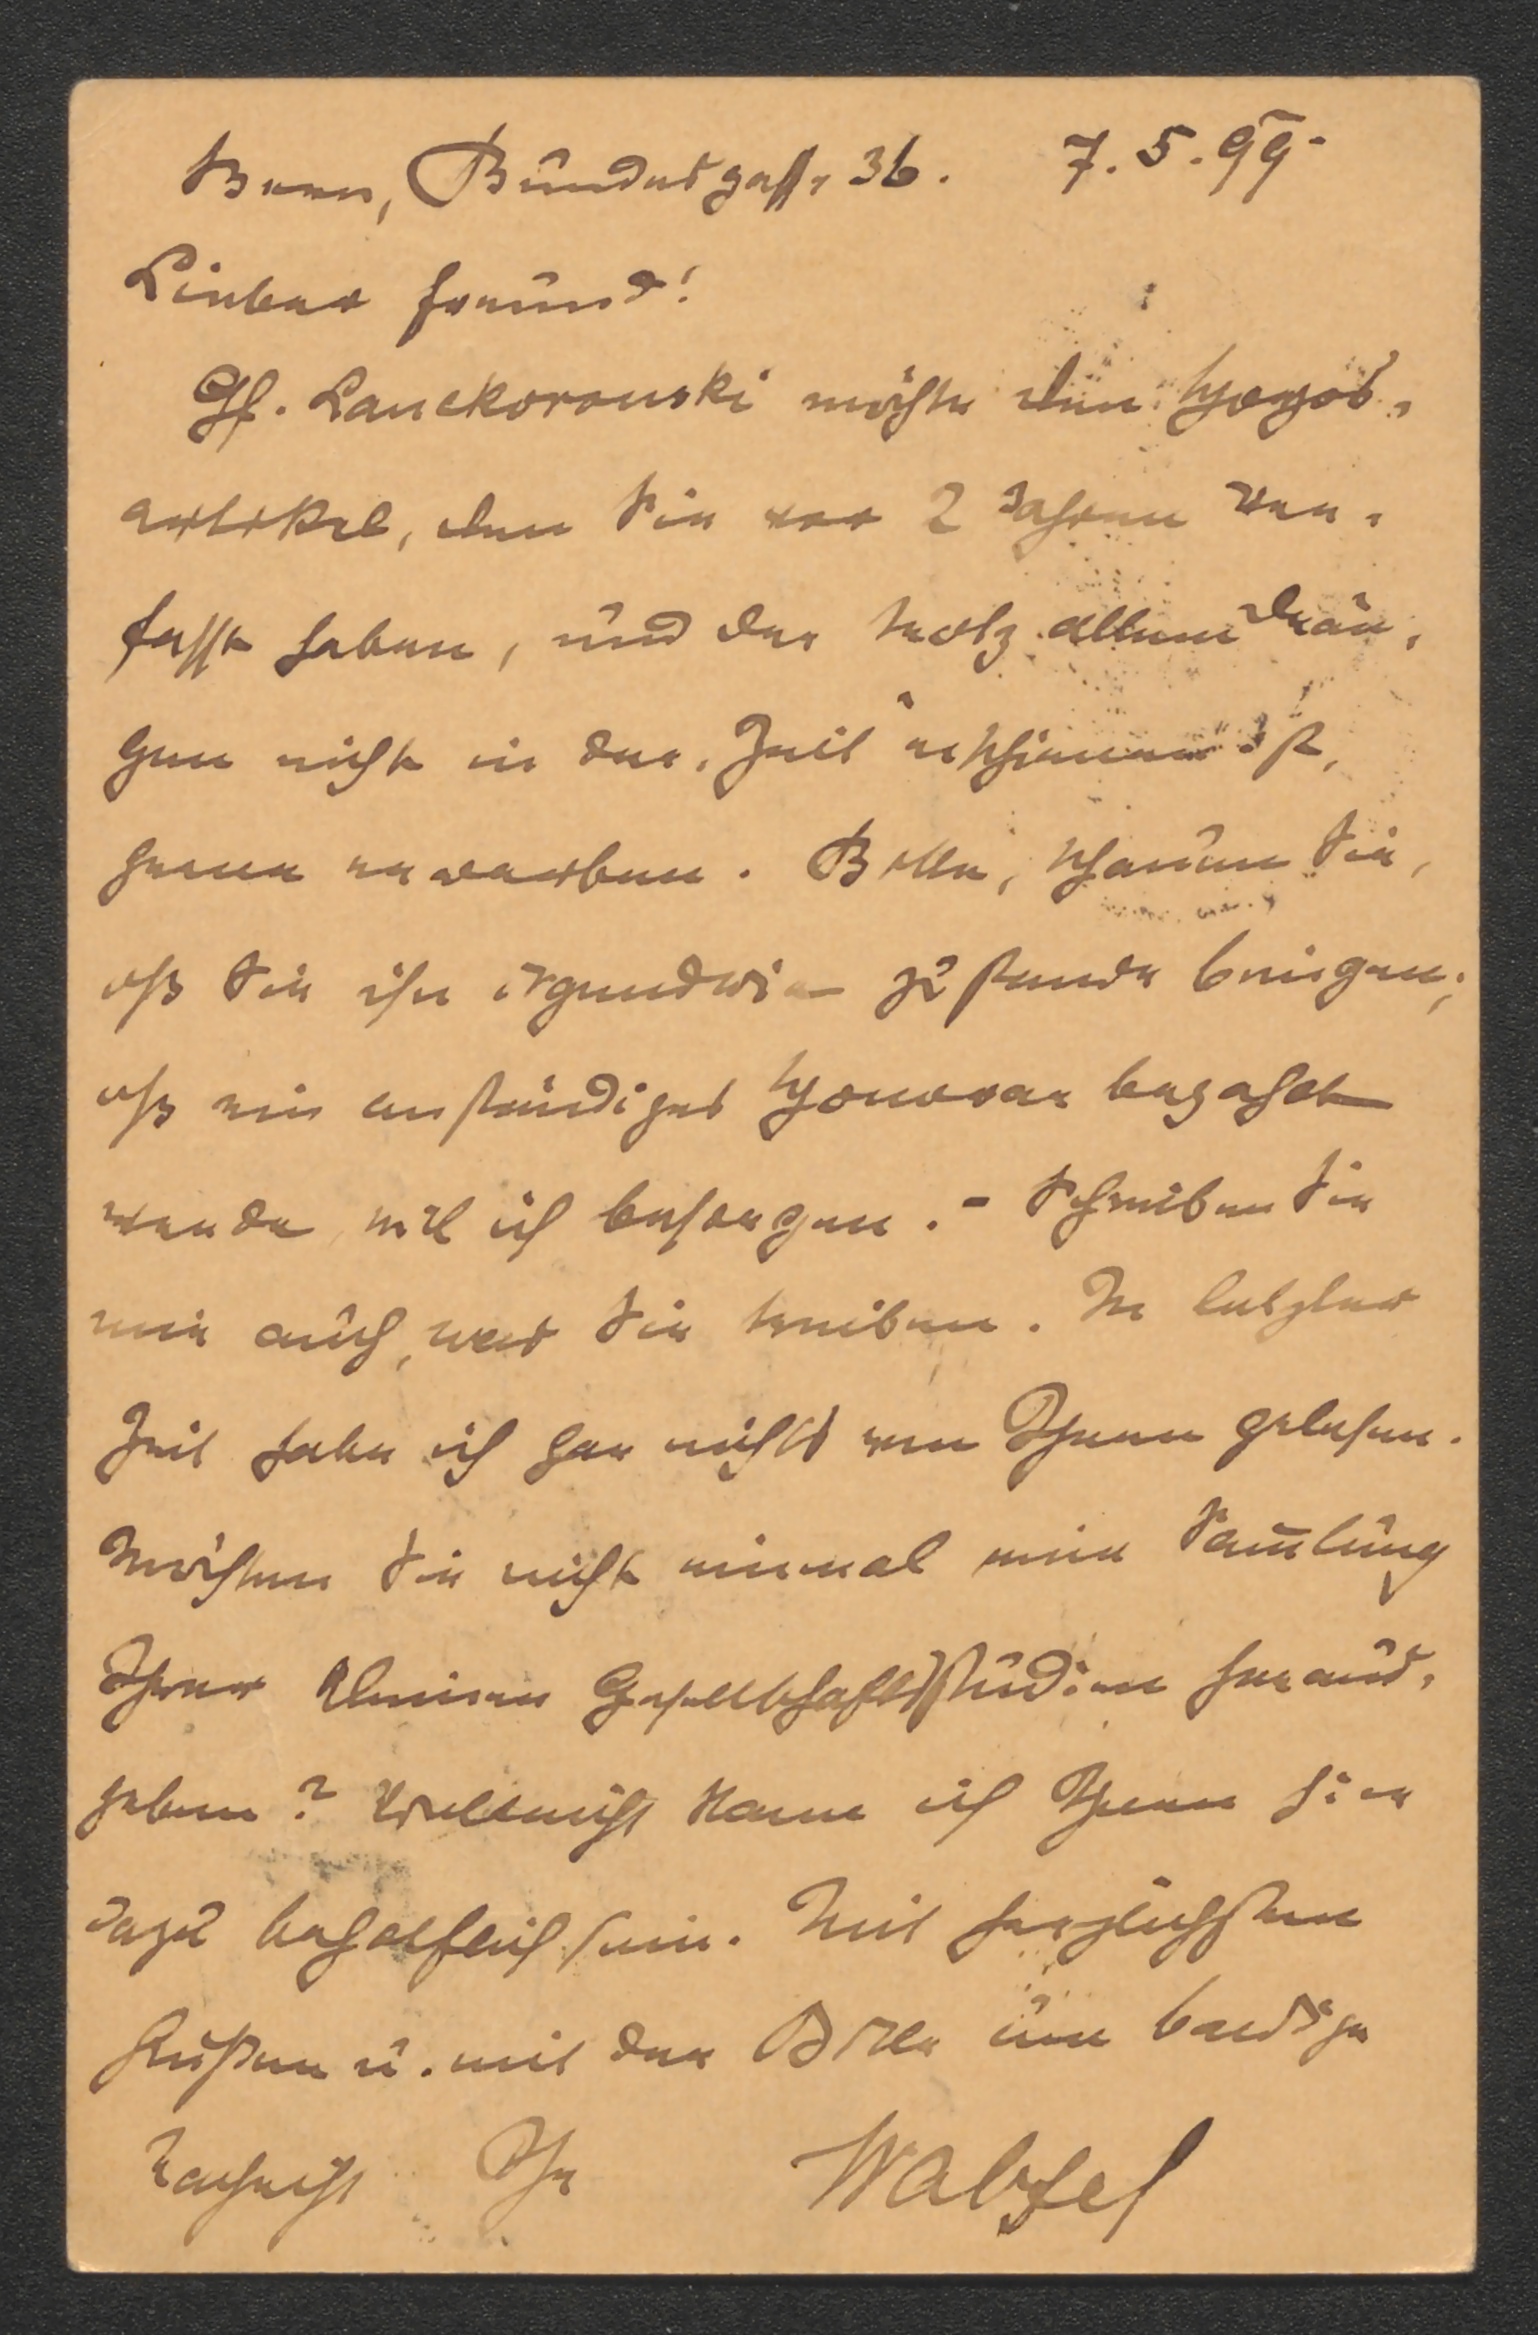 Bern, Bundesgasse 36. 7.5.99.
Lieber Freund!
Gf. Lanckoronski möchte den
artikel, den Sie vor 2 Jahren ver-
faßt haben, und der trotz allem Drän-
gen nicht in der „Zeit" erschienen ist,
gerne erwerben. Bitte, schauen Sie,
ob Sie ihn irgendwie zustande bringen;
ob ein anständiges Honorar bezahlt
werde, will ich besorgen. – Schreiben Sie
mir auch, was Sie treiben. In letzter
Zeit habe ich gar nichts von Ihnen gelesen.
Möchten Sie nicht einmal eine Sam̅lung
Ihrer kleinen Gesellschaftsstudien heraus-
geben? Vielleicht kann ich Ihnen hier
dazu behilflich sein. Mit herzlichsten
Grüßen u. mit der Bitte um baldige
Nachricht Ihr Walzel